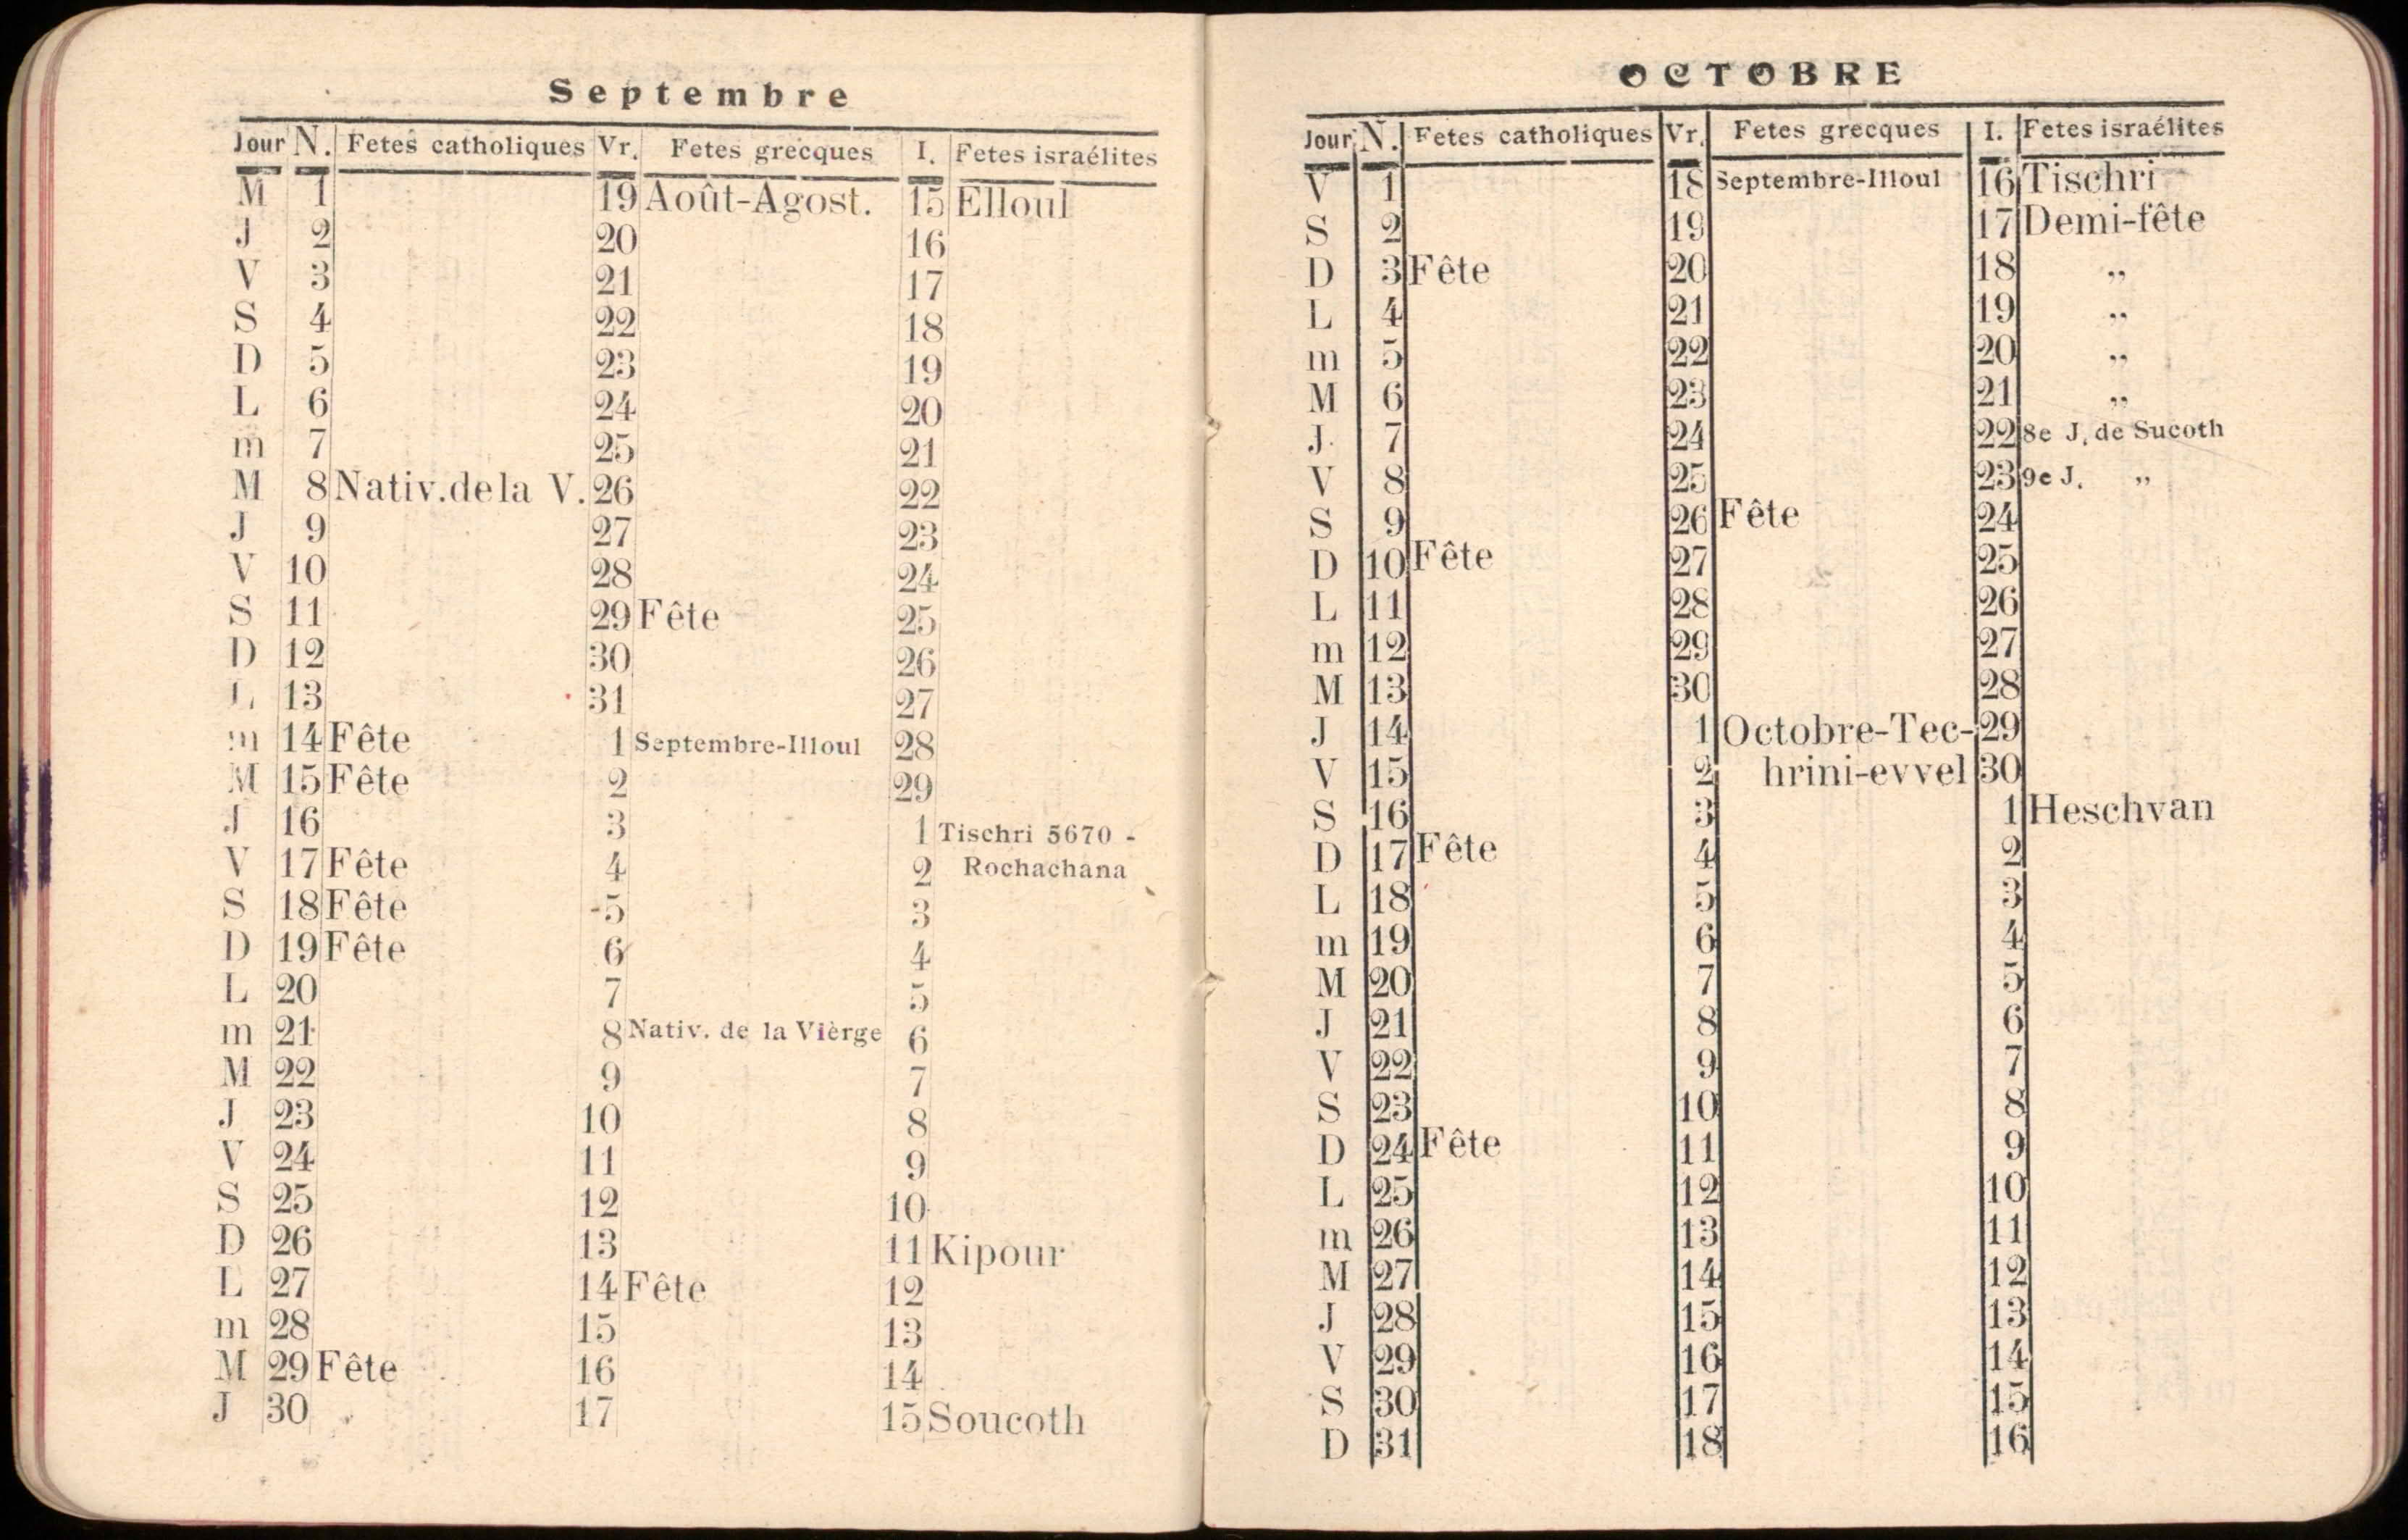 Septembre
Jour N. Fetes catholiques Vr. Fetes grecques I. Fetes israélites
M 1 19 Août-Agost. 15 Elloul
J 2 20 16
V 3 21 17
S 4 22 18
D 5 23 19
L 6 24 20
m 7 25 21
M 8 Nativ.de la V. 26 22
J 9 27 23
V 10 28 24
S 11 29 Fête 25
D 12 30 26
L 13 31 27
m 14 Fête 1 Septembre-Illoul 28
M 15 Fête 2 29
J 16 3 1 Tischri 5670 -
V 17 Fête 4 2 Rochachana
S 18 Fête 5 3
D 19 Fête 6 4
L 20 7 5
m 21 8 Nativ. de la Vièrge 6
M 22 9 7
J 23 10 8
V 24 11 9
S 25 12 10
D 26 13 11 Kipour
L 27 14 Fête 12
m 28 15 13
M 29 Fête 16 14
J 30 17 15 Soucoth
OCTOBRE
Jour N. Fetes catholiques Vr. Fetes grecques I. Fetes israélites
V 1 18 Septembre-Illoul 16 Tischri
S 2 19 17 Demi-fête
D 3 Fête 20 18 „
L 4 21 19 „
m 5 22 20 „
M 6 23 21 „
J. 7 24 22 8e J. de Sucoth
V 8 25 23 9e J. „
S 9 26 Fête 24
D 10 Fête 27 25
L 11 28 26
m 12 29 27
M 13 30 28
J 14 1 Octobre-Tec- 29
V 15 2 hrini-evvel 30
S 16 3 1 Heschvan
D 17 Fête 4 2
L 18 5 3
m 19 6 4
M 20 7 5
J 21 8 6
V 22 9 7
S 23 10 8
D 24 Fête 11 9
L 25 12 10
m 26 13 11
M 27 14 12
J 28 15 13
V 29 16 14
S 30 17 15
D 31 18 16